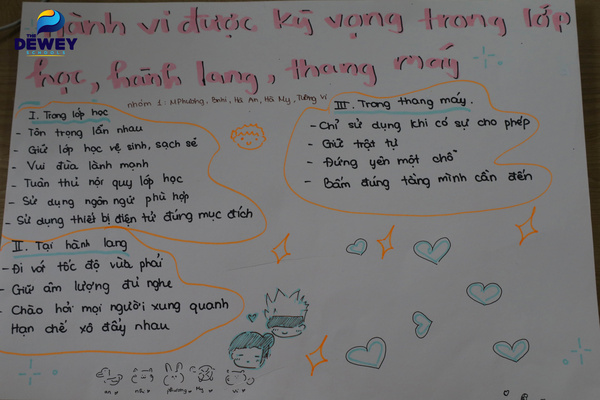 THE
DEWEY
SCHOOLS
Hành vi được kỳ vọng trong lớp
học, hành lang, thang máy
nhóm 1: M.Phương, Bnhi, Hà An, Hà My, Tường Vi
I. Trong lớp học
- Tôn trọng lẫn nhau
- Giữ lớp học vệ sinh, sạch sẽ
- Vui đùa lành mạnh
- Tuân thủ nội quy lớp học
- Sử dụng ngôn ngữ phù hợp
- Sử dụng thiết bị điện tử đúng mục đích
II. Tại hành lang
- Đi với tốc độ vừa phải
- Giữ âm lượng đủ nghe
- Chào hỏi mọi người xung quanh
Hạn chế xô đẩy nhau
III. Trong thang máy.
- Chỉ sử dụng khi có sự cho phép
- Giữ trật tự
- Đứng yên một chỗ
- Bấm đúng tầng mình cần đến
An nhi phương My vi